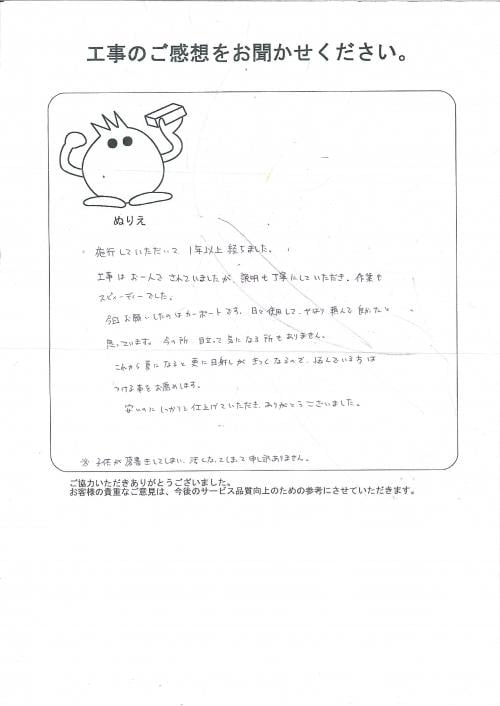 工事のご感想をお聞かせください。
ぬりえ
施行していただいて、1年以上経ちました。
工事はお一人でされていましたが、説明も丁寧にしていただき、作業も
スピィーディーでした。
今回お願いしたのはカーポートです。日々使用して、やはり頼んで良かったと
思っています。今の所、目立って気になる所もありません。
これから夏になると更に日射しがきつくなるので、悩んでいる方は
つける事をお薦めします。
安いのにしっかりと仕上げていただき、ありがとうございました。
※子供が落書きしてしまい、汚くなってしまって申し訳ありません。
ご協力いただきありがとうございました。
お客様の貴重なご意見は、今後のサービス品質向上のための参考にさせていただきます。